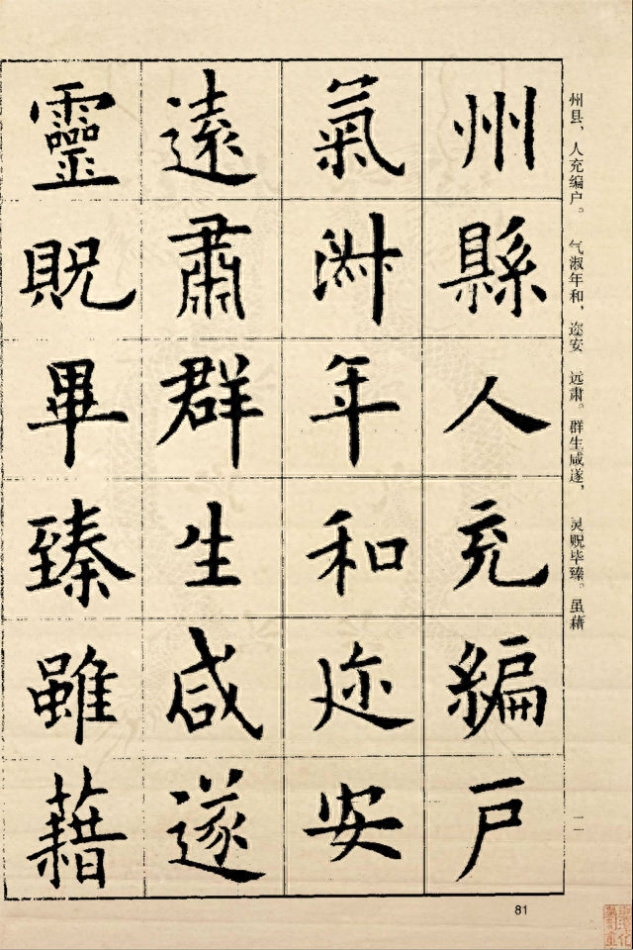 州县、人充编户。 气淑年和，迩安 远肃。群生咸遂， 灵贶毕臻。虽藉
州縣人充編戶
氣淑年和迩安
遠肅群生咸遂
靈貺畢臻雖藉
一一
81